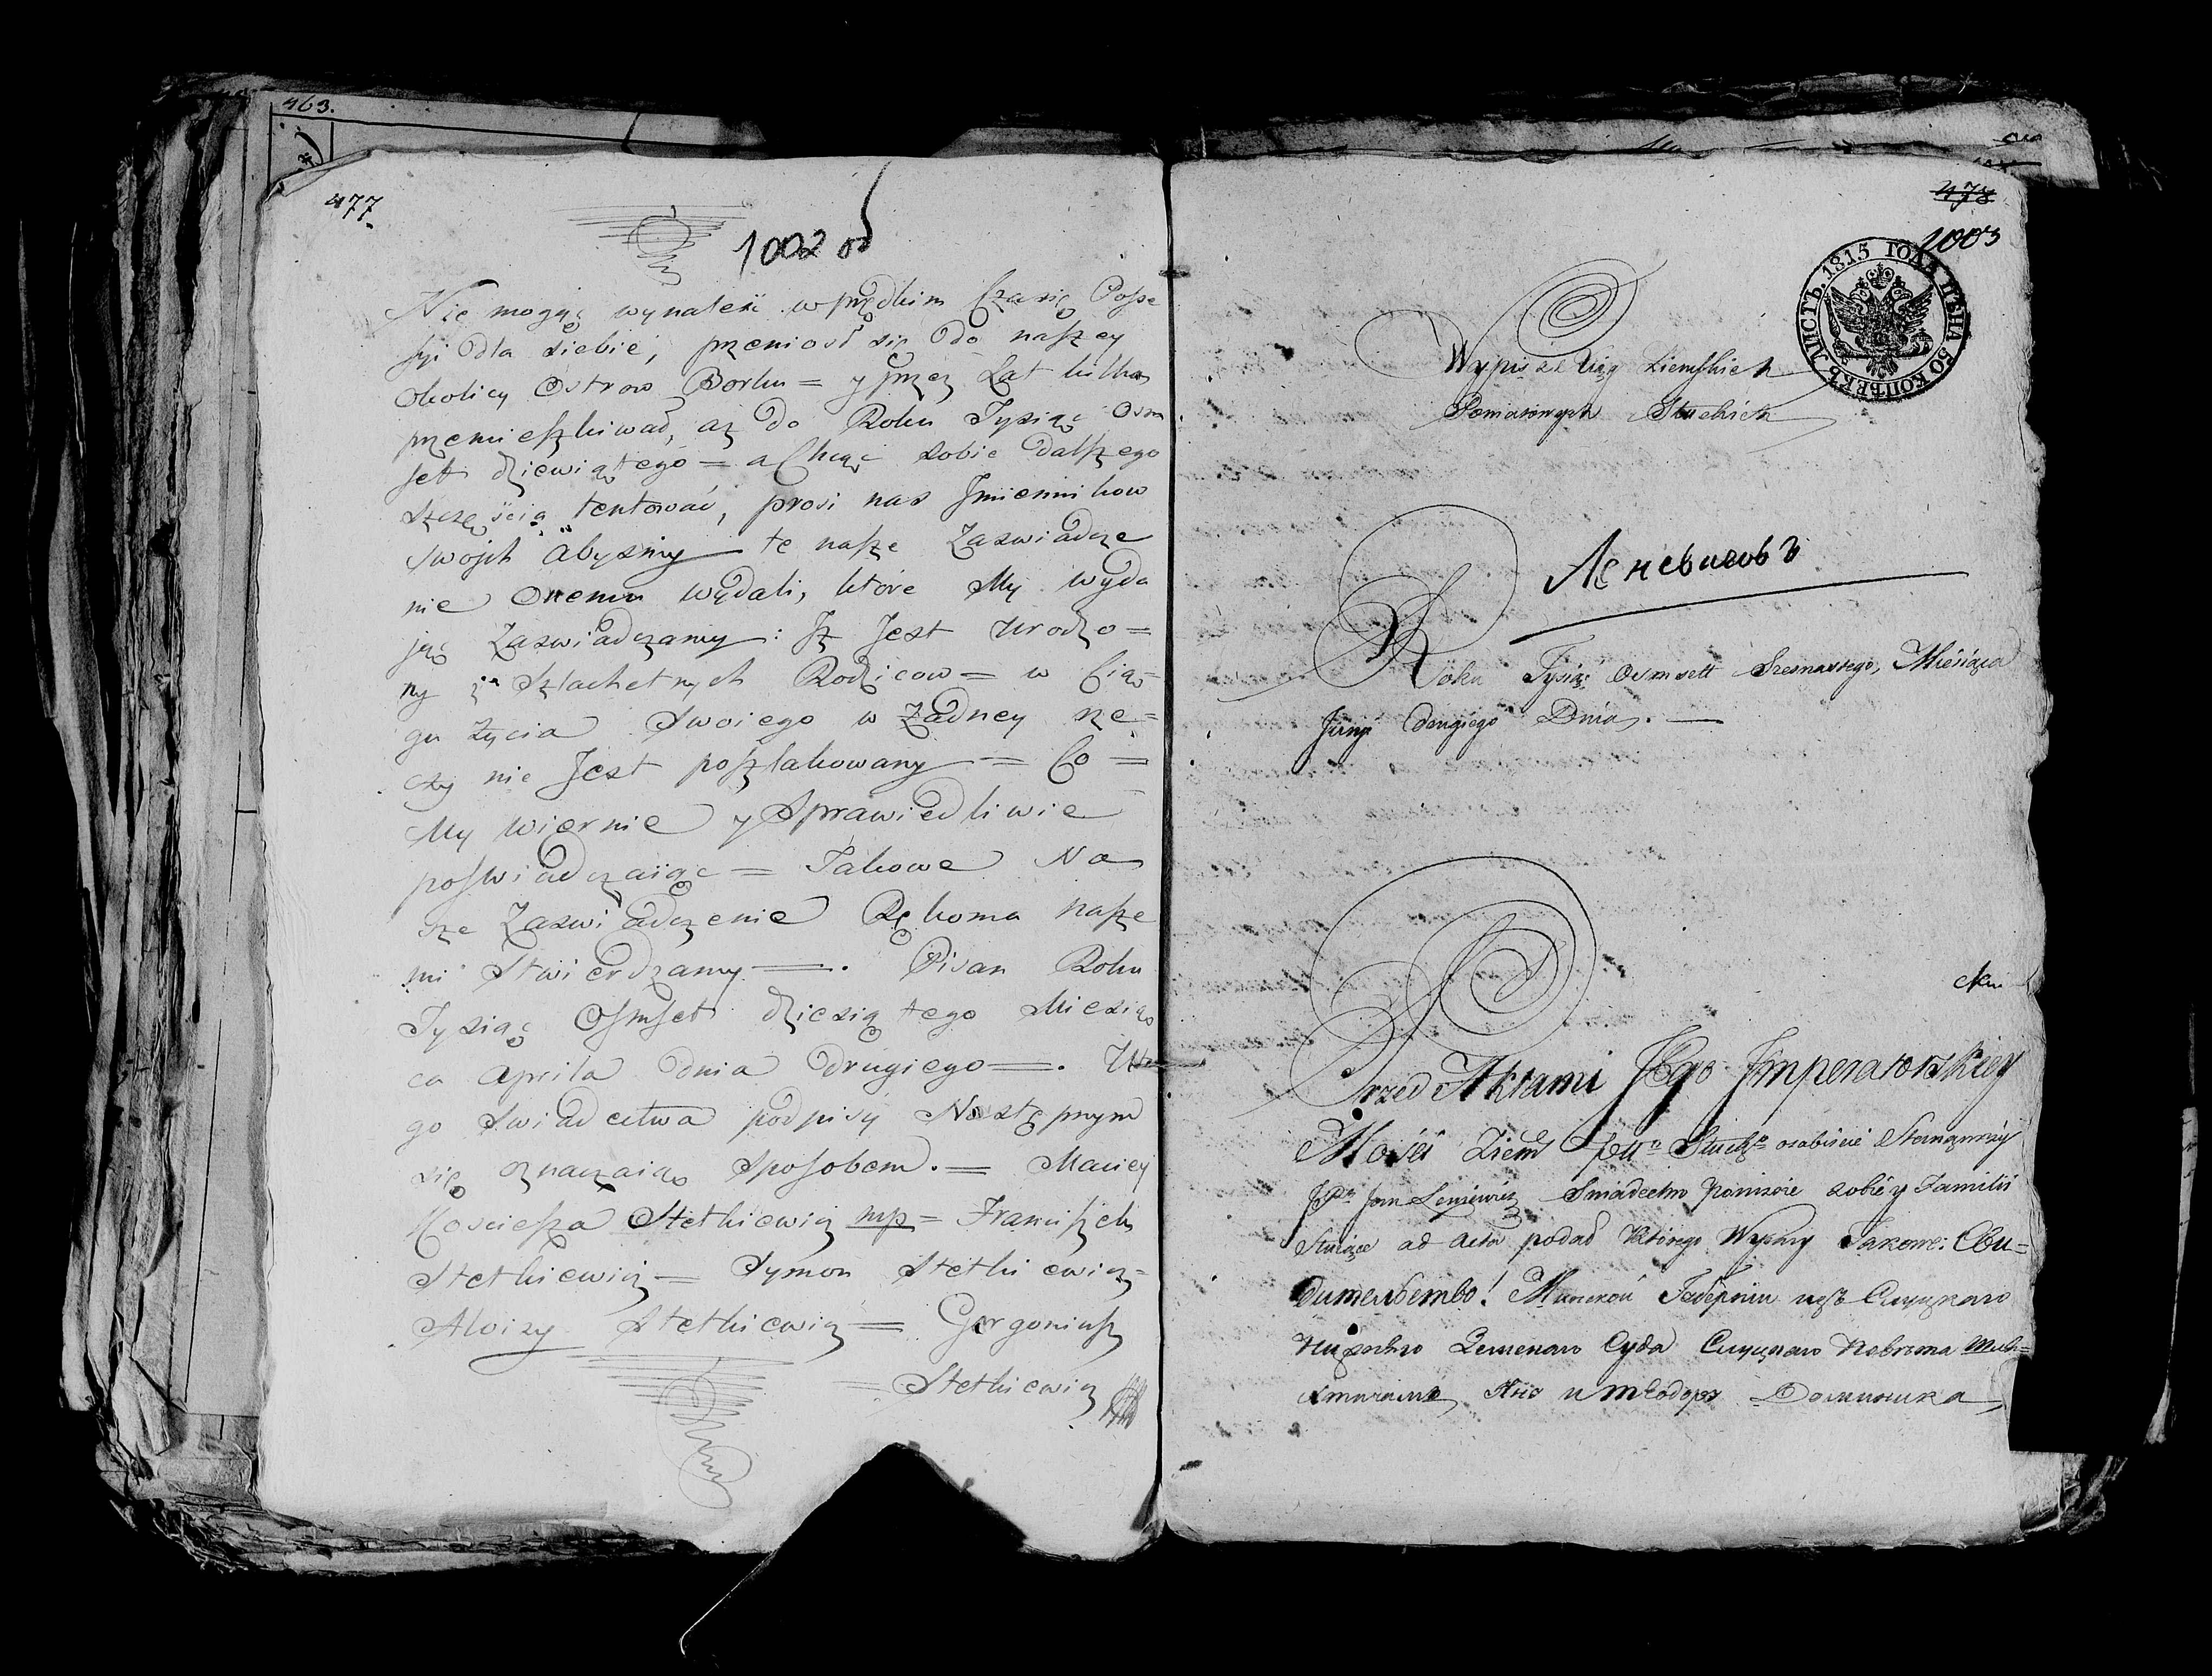 463.
477.
1002 об
Nie mogąc wynaleśi w prędkim Czasię Posse
syi dla siebie, przeniosł się do naszey
okolicy Ostrow Borku = y przez Lat kilka
przemieszkiwał, aż do Roku Tysiąc osm
set dziewiątego = a Chcąc sobie dalszego
szczęścia tentować, prosi nas Jmiennikow
swojch abysmy te nasze Zaswiadcze
nie onemu wydali, które My wyda
jąc Zaswiadczamy: Jż Jest Urodzo=
ny z Szlachetnych Rodzicow = w Cią=
gu życia swoiego w Żadney rze=
czy nie Jest poszlakowany = Co =
My wiernie y Sprawiedliwie
poswiadczaiąc = Takowe Na
sze Zaswiadczenie Rękoma nasze
mi Stwierdzamy =. Pisan Roku
Tysiąc Osmset dziesiątego Miesią
ca Aprila dnia drugiego =.
go Swiadectwa podpisy Następnym
się oznaczaią sposobem. = Maciey
Kościesza Stetkiewicz mp = Franciszek
Stetkiewicz = Symon Stetkiewicz =
Aloizy Stetkiewicz = Gorgoniusz
= Stetkiewicz
478
1003
ЛИСТЪ. 1815 ГОДА ЦѢНА 50 КОПѢЕКЪ
Wypis z Xiąg Ziemskich
Powiatowych Słuckich
Леневичовъ
Roku Tysiąc Osmsett Szesnastego, Miesiąca
Junji drugiego Dnia. —
Przed Aktami JEgo Jmperatorskiey
Mości Ziem pttu Słuckgo osabiscie Stanąwszy
JPn Jan Leniewicz Swiadectwo poniższe sobie y Familii
Służące ad Acta podał Którego Wyrazy Takowe: Сви=
дительство! Минской Губерніи изъ Слуцкаго
Нижняго Земскаго Суда Слуцкаго Повѣта
Доминика